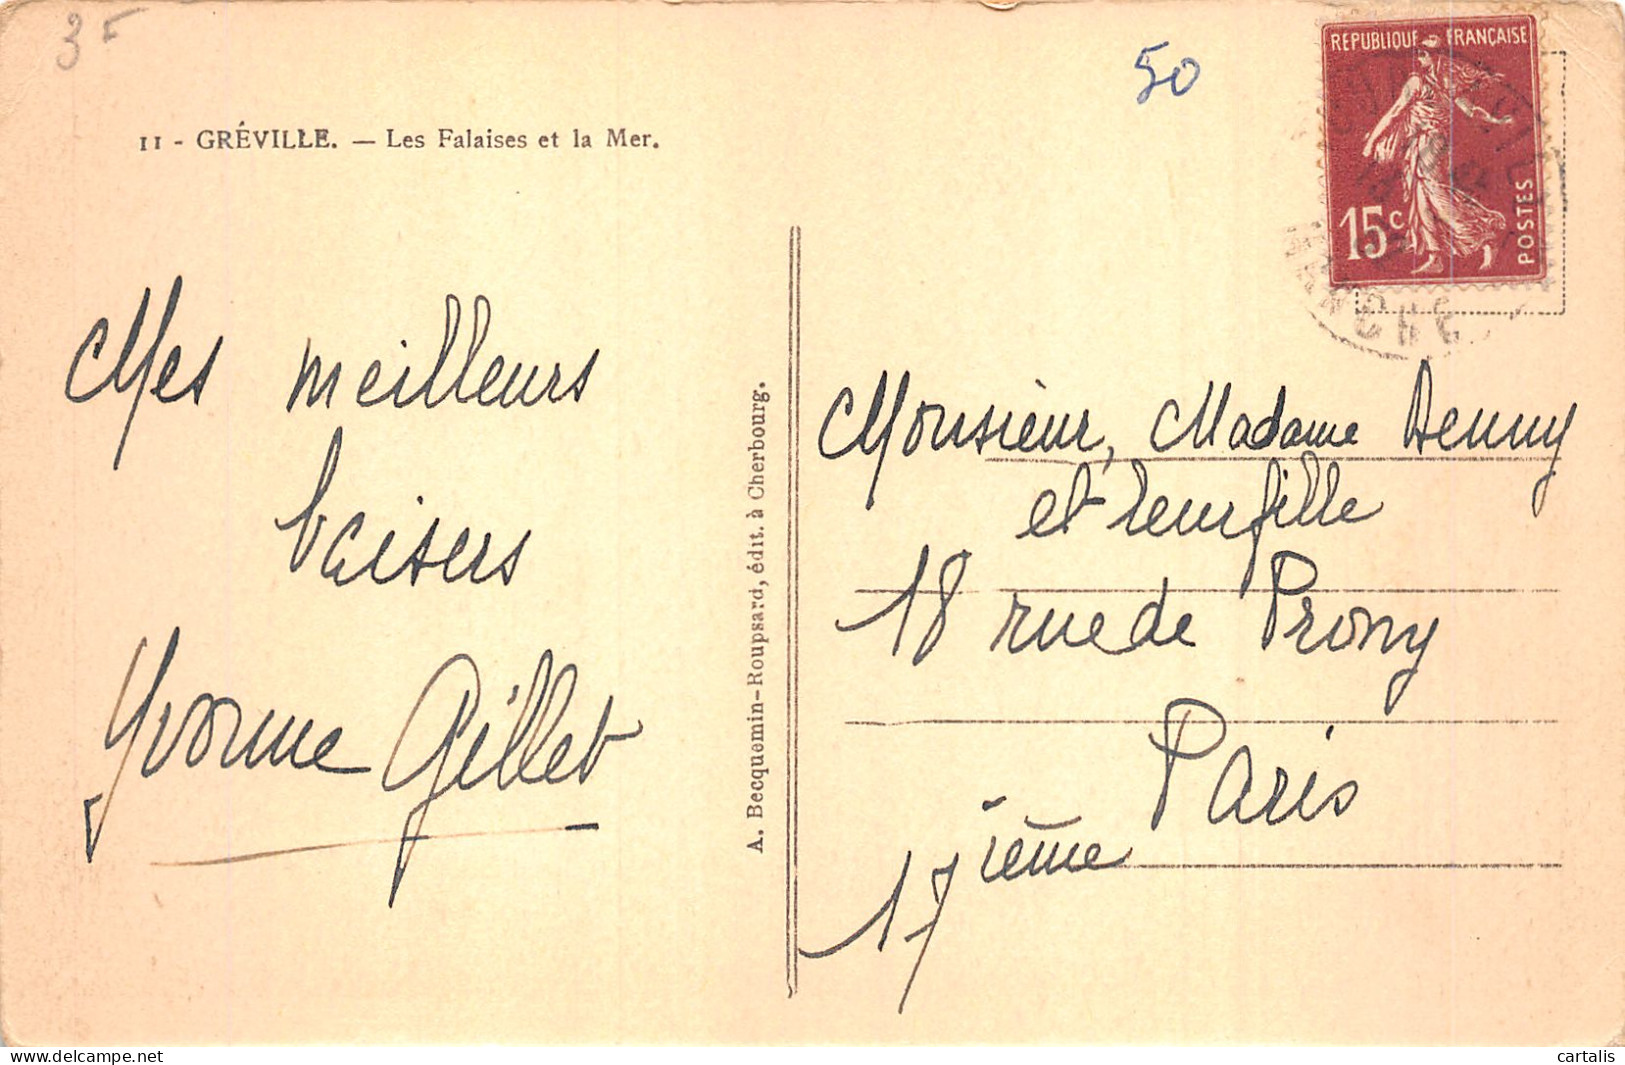 3F
50
REPUBLIQUE FRANÇAISE
15c
POSTES
MANCHE
11 - GRÉVILLE. — Les Falaises et la Mer.
Mes meilleurs
baisers
Yvonne Gillet
A. Becquemin-Roupsard, édit. à Cherbourg.
Monsieur, Madame Denny
et leur fille
18 rue de Prony
Paris
17 ième
cartalis